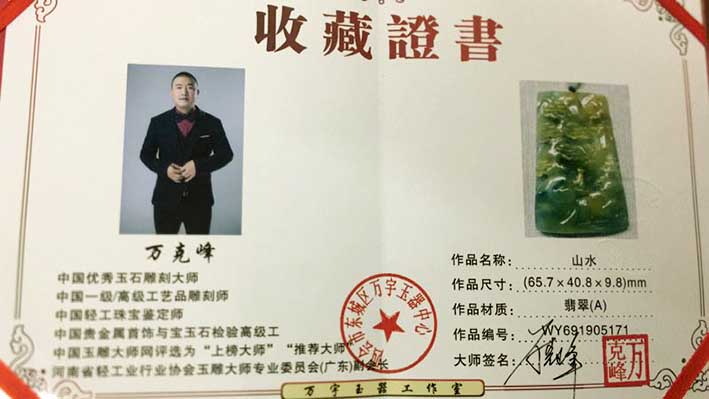 收藏證書
万克峰
中国优秀玉石雕刻大师
中国一级/高级工艺品雕刻师
中国轻工珠宝鉴定师
中国贵金属首饰与宝玉石检验高级工
中国玉雕大师网评选为“上榜大师”“推荐大师”
河南省轻工业行业协会玉雕大师专业委员会(广东)副会长
作品名称: 山水
作品尺寸: (65.7×40.8×9.8)mm
作品材质: 翡翠(A)
作品编号: WY691905171
大师签名:
万克峰
会市东城区万宇玉器中心
万宇玉器工作室